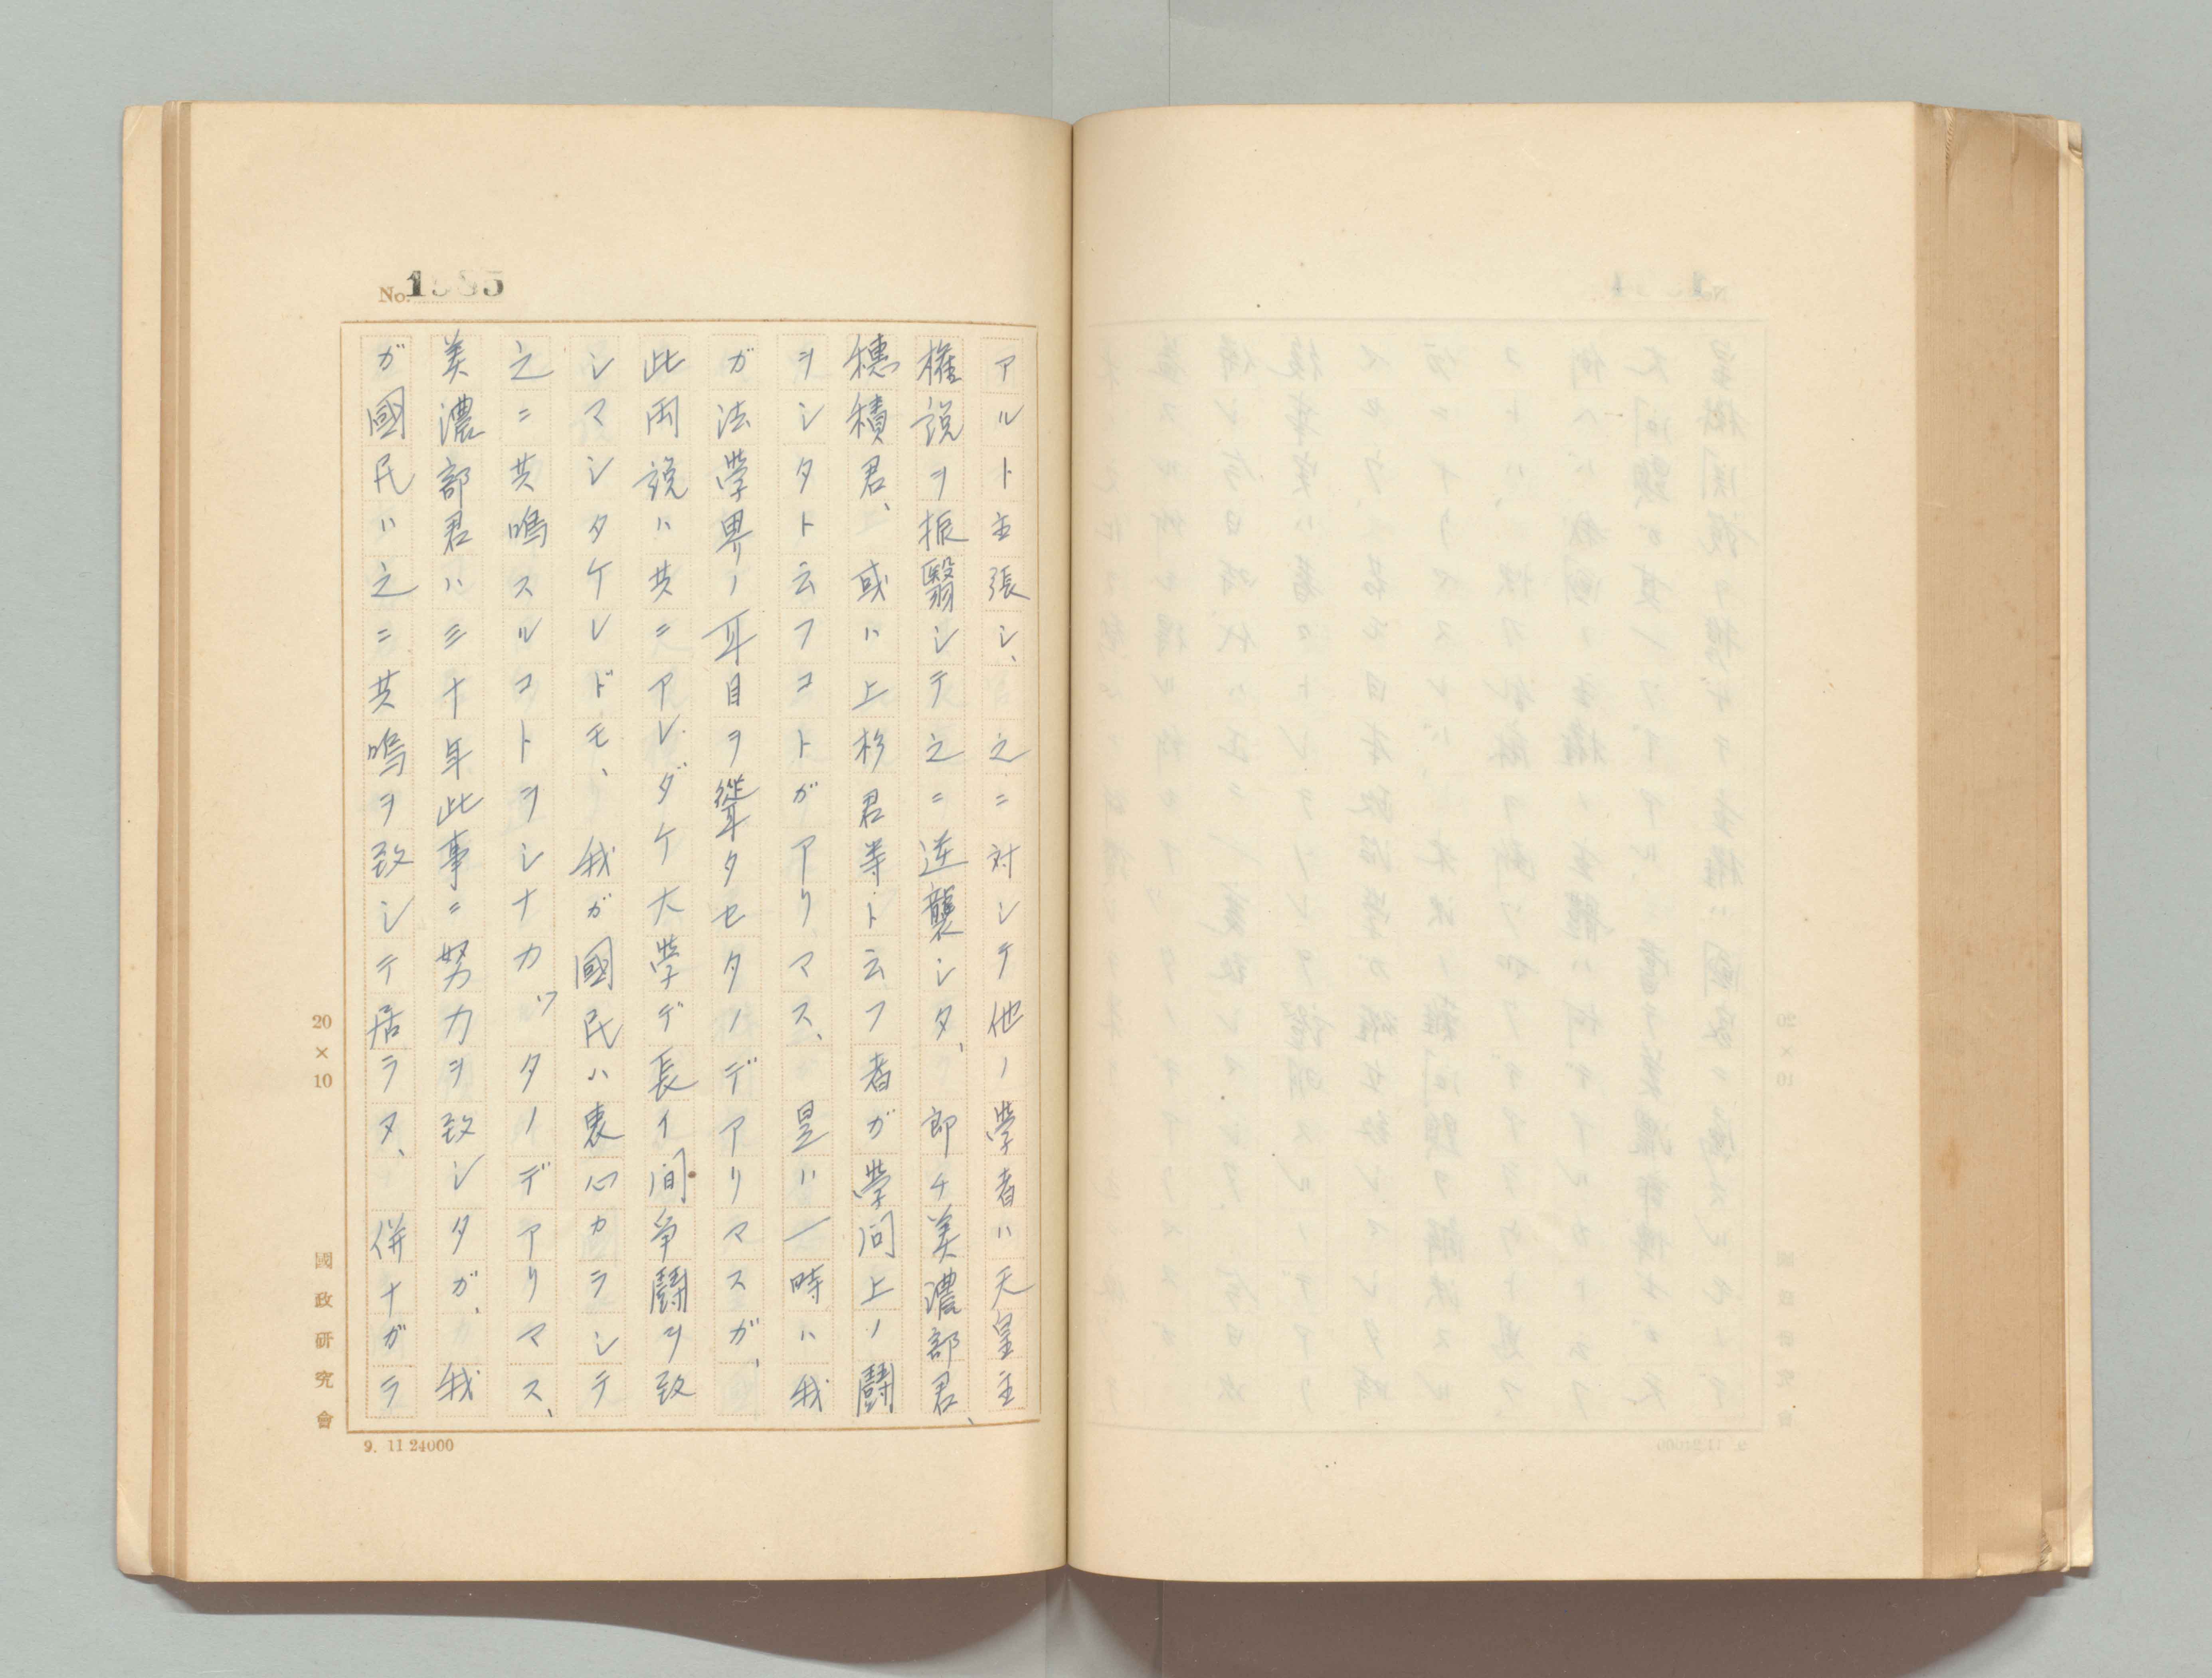 No. 1935
アルト主張シ、之ニ対シテ他ノ學者ハ天皇主
権説ヲ振翳シテ之ニ逆襲シタ、即チ美濃部君、
穗積君、或ハ上杉君等ト云フ者ガ學問上ノ鬪
ヲシタト云フコトガアリマス、是ハ一時ハ我
ガ法學界ノ耳目ヲ聳タセタノデアリマスガ、
此兩説ハ共ニアレダケ大學デ長イ間爭鬪ヲ致
シマシタケレドモ、我ガ國民ハ衷心カラシテ
之ニ共鳴スルコトヲシナカッタノデアリマス、
美濃部君ハ三十年此事ニ努力ヲ致シタガ、我
ガ國民ハ之ニ共鳴ヲ致シテ居ラヌ、併ナガラ
20×10
國政研究會
9. 11 24000